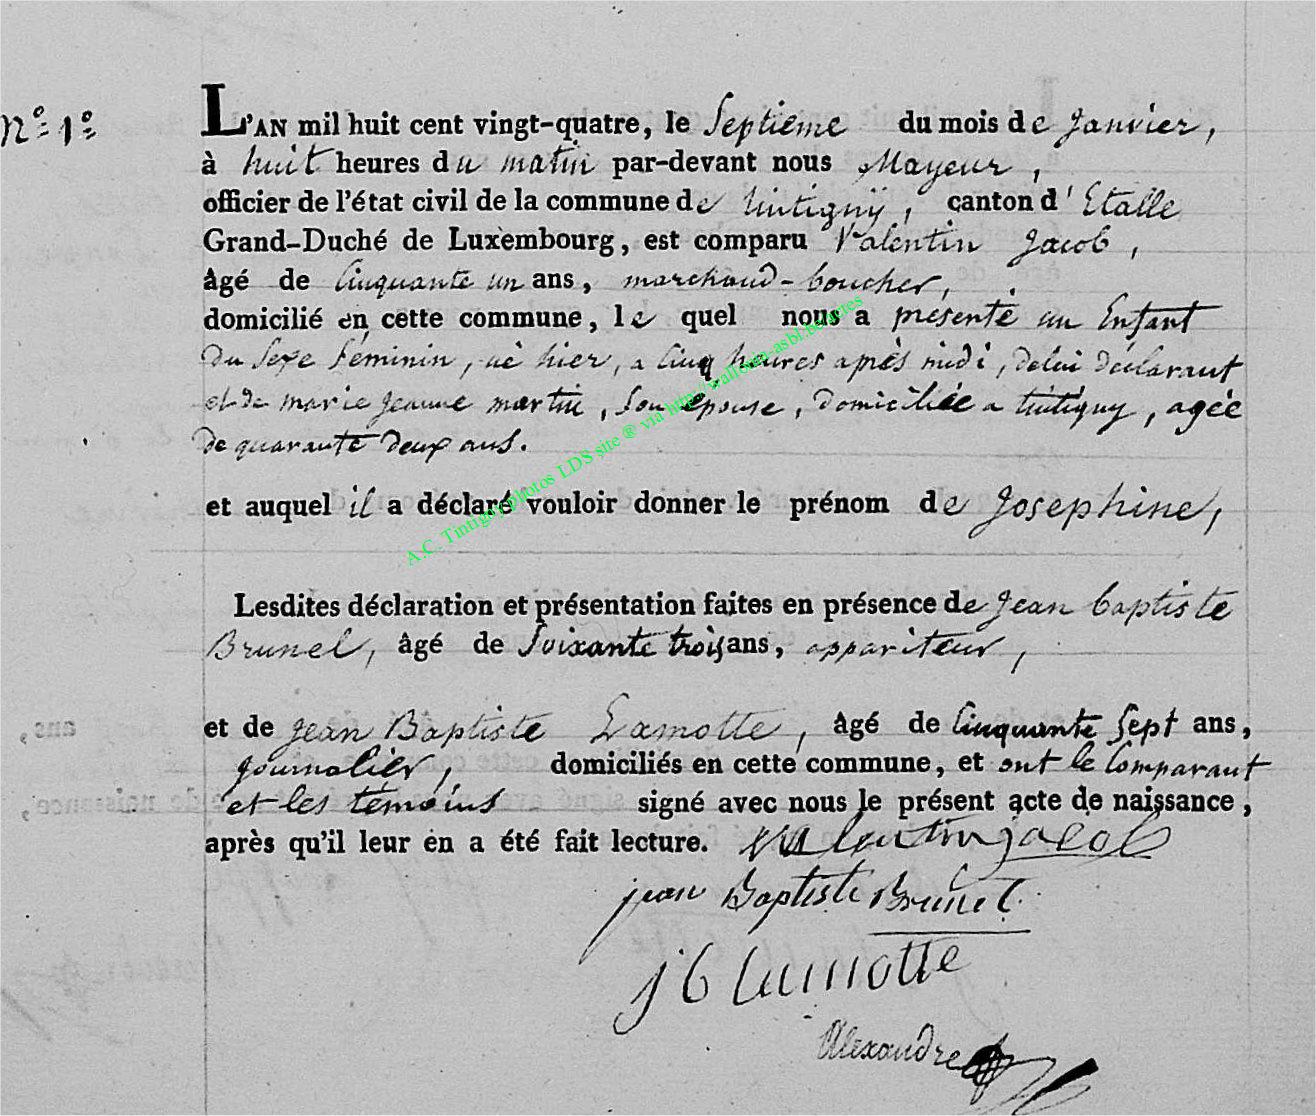 N.º 1º
L'AN mil huit cent vingt-quatre, le Septieme du mois de Janvier,
à huit heures du matin par-devant nous Mayeur,
officier de l'état civil de la commune de tintigny, canton d'Etalle
Grand-Duché de Luxembourg, est comparu Valentin Jacob,
âgé de Cinquante un ans, marchand-boucher,
domicilié en cette commune, le quel nous a présenté un Enfant
du Sexe féminin, né hier, a cinq heures après midi, de lui déclarant
et de marie jeanne martin, Son épouse, domiciliée a tintigny, agée
de quarante deux ans.
A.C. Tintigny photos LDS site ® via http://wallonia-asbl.be/actes
et auquel il a déclaré vouloir donner le prénom de Josephine,
Lesdites déclaration et présentation faites en présence de Jean baptiste
Brunel, âgé de Soixante trois ans, appariteur,
et de jean Baptiste Lamotte, âgé de Cinquante Sept ans,
journalier, domiciliés en cette commune, et ont le Comparant
et les témoins signé avec nous le présent acte de naissance,
après qu'il leur en a été fait lecture. valentin jacob
jean Baptiste Brunel
j b lamotte
Alexandre